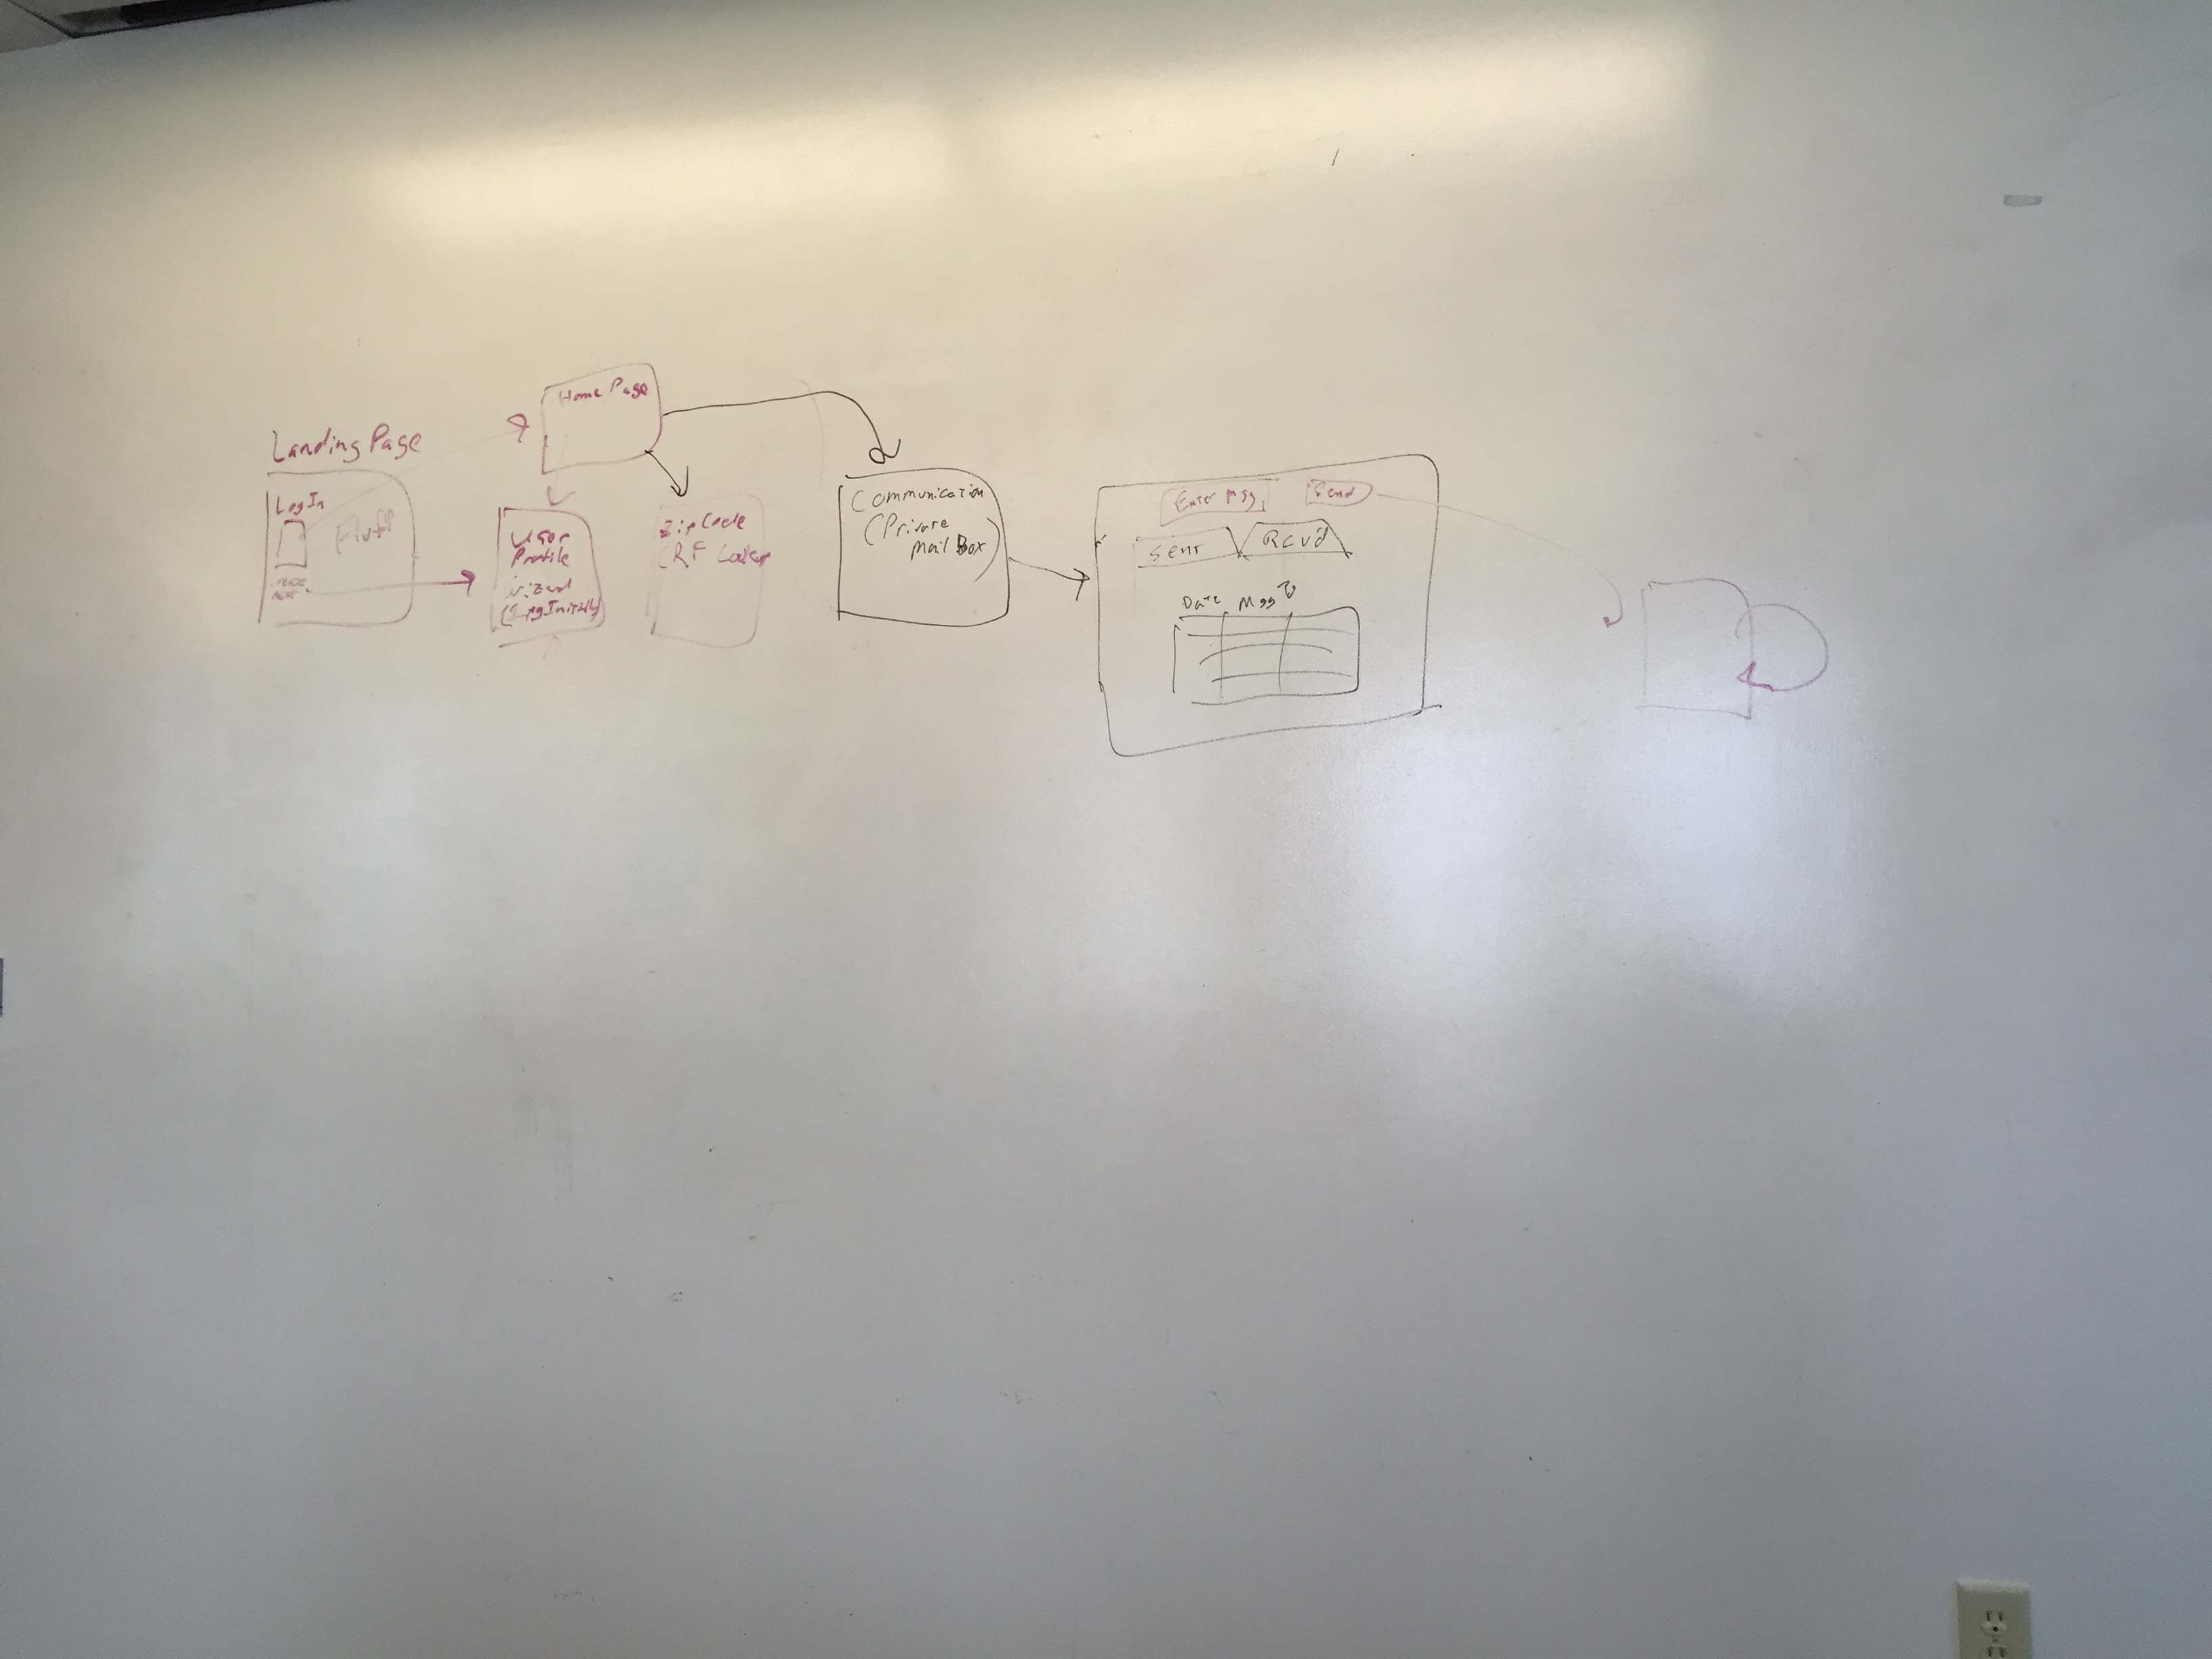 Landing Page
LogIn
Fluff
Home Page
User
Profile
wizard
Zip Code
CRF Lookup
Communication
(Private
Mail Box)
Enter Msg
Send
Sent
Rcvd
Date
Msg